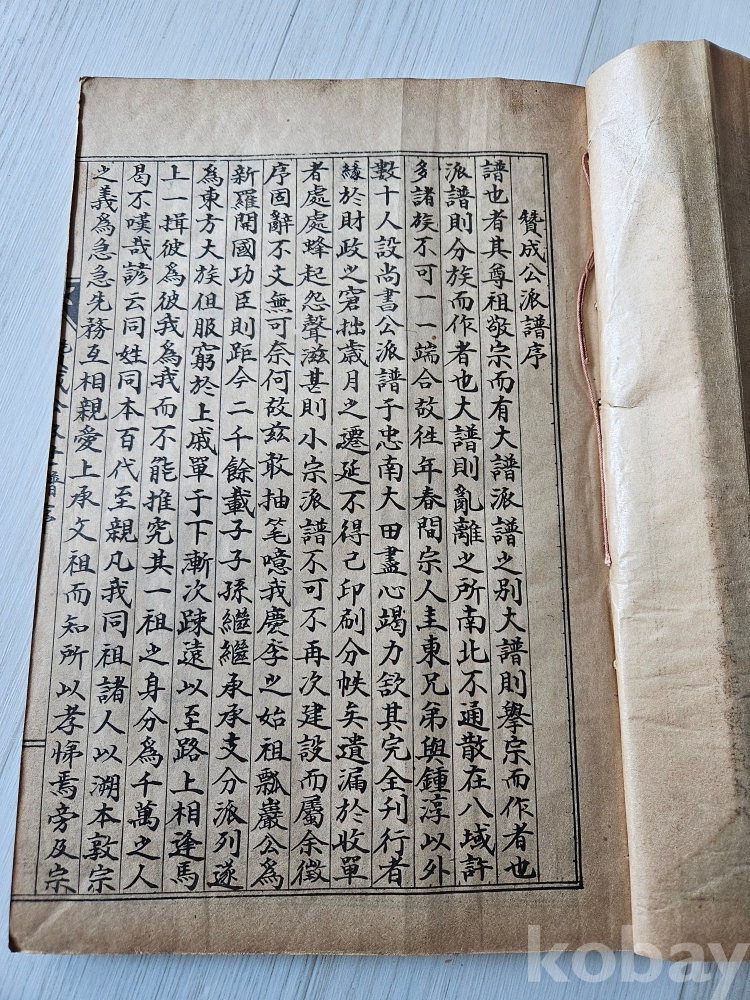 贊成公派譜序
譜也者其尊祖敬宗而有大譜派譜之別大譜則擧宗而作者也
派譜則分族而作者也大譜則亂離之所南北不通散在八域許
多諸族不可一一端合故往年春間宗人圭東兄弟與鍾淳以外
數十人設尚書公派譜于忠南大田盡心竭力欲其完全刊行者
緣於財政之窘拙歲月之遷延不得已印刷分帙矣遺漏於收單
者處處蜂起怨聲滋甚則小宗派譜不可不再次建設而屬余徵
序固辭不文無可奈何故玆敢抽笔噫我慶李之始祖瓢巖公爲
新羅開國功臣則距今二千餘載子子孫繼繼承承支分派列遂
爲東方大族但服窮於上戚單于下漸次踈遠以至路上相逢馬
上一揖彼爲彼我爲我而不能推究其一祖之身分爲千萬之人
曷不嘆哉諺云同姓同本百代至親凡我同祖諸人以溯本敦宗
之義爲急急先務互相親愛上承文祖而知所以孝悌焉旁及宗
kobay